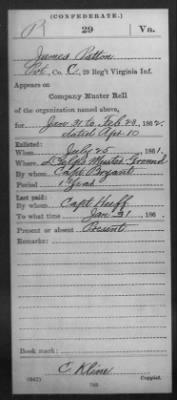 (CONFEDERATE.)
P 29 Va.
James Patton
Pvt, Co. C, 29 Reg't Virginia Inf.
Appears on
Company Muster Roll
of the organization named above,
for Jan 31 to Feb 28, 1862.
dated Apr 10
Enlisted:
When July 25, 1861.
Where Muster Ground
By whom Capt Bryant
Period 1 Year
Last paid:
By whom Capt Huff
To what time Jan 31, 186
Present or absent Present
Remarks:
Book mark:
C Kline
(642) Copyist.